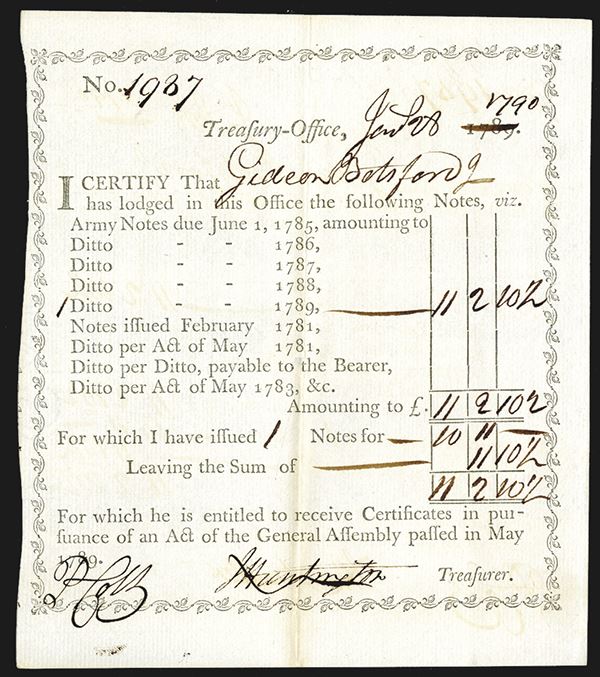 No. 1987
Treaſury-Office, Jany 28 1790
1789.
I CERTIFY That Gideon Botsford
has lodged in this Office the following Notes, viz.
Army Notes due June 1, 1785, amounting to
Ditto - - 1786,
Ditto - - 1787,
Ditto - - 1788,
1 Ditto - - 1789, 11 2 10½
Notes iſſued February 1781,
Ditto per Act of May 1781,
Ditto per Ditto, payable to the Bearer,
Ditto per Act of May 1783, &c.
Amounting to £. 11 2 10½
For which I have iſſued 1 Notes for — 10 11 —
Leaving the Sum of — 11 10½
11 2 10½
For which he is entitled to receive Certificates in pur-
ſuance of an Act of the General Aſſembly paſſed in May
1789.
J Huntington Treaſurer.